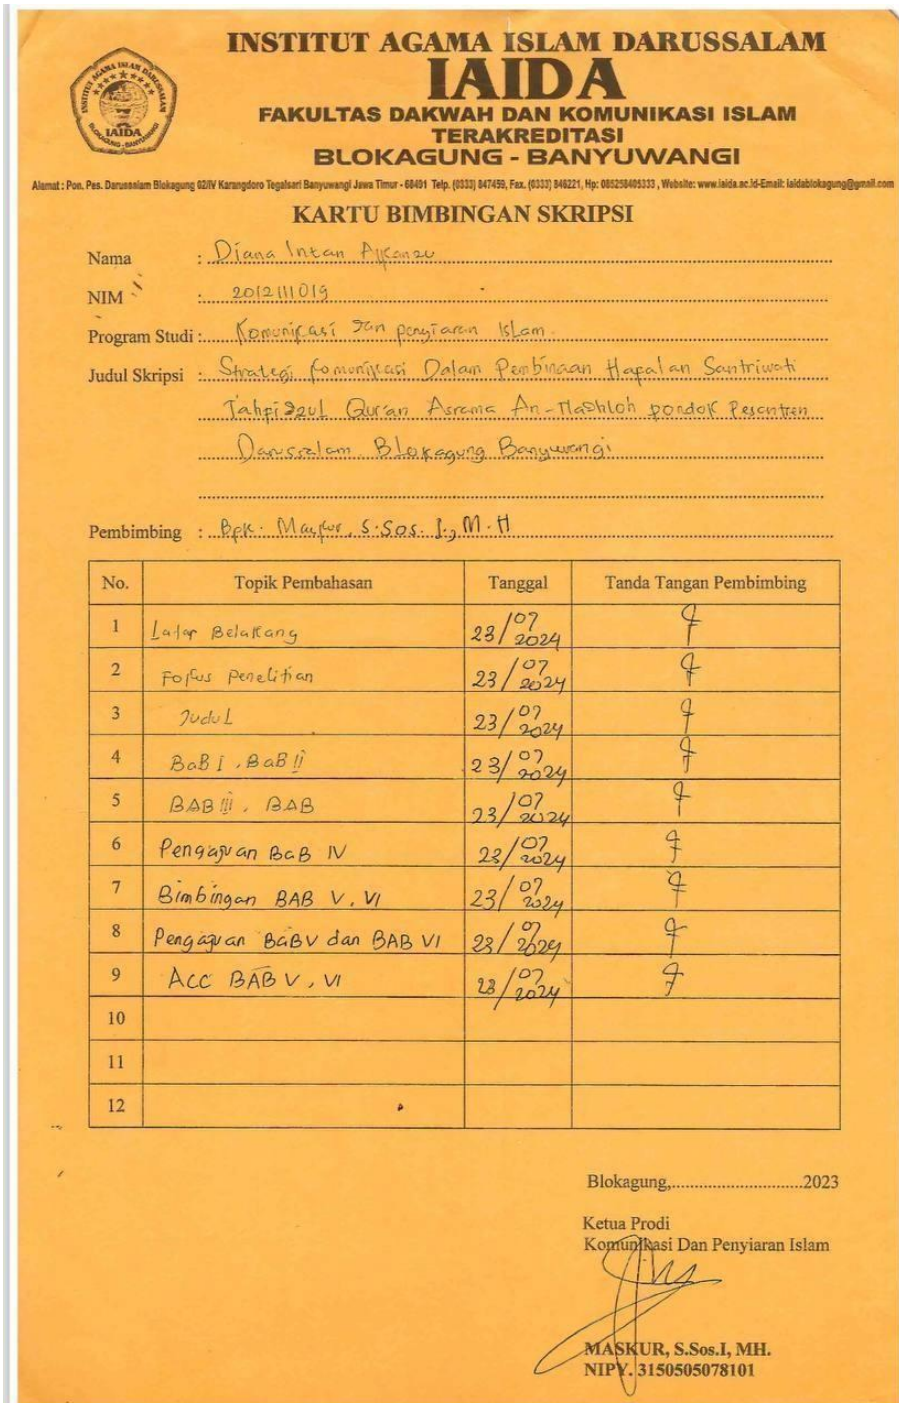 INSTITUT AGAMA ISLAM DARUSSALAM
IAIDA
FAKULTAS DAKWAH DAN KOMUNIKASI ISLAM
TERAKREDITASI
BLOKAGUNG - BANYUWANGI
INSTITUT AGAMA ISLAM DARUSSALAM
IAIDA
BLOKAGUNG - BANYUWANGI
Alamat : Pon. Pes. Darussalam Blokagung 02/IV Karangdoro Tegalsari Banyuwangi Jawa Timur - 68491 Telp. (0333) 847459, Fax. (0333) 846221, Hp: 085258405333 , Website: www.iaida.ac.id-Email: iaidablokagung@gmail.com
KARTU BIMBINGAN SKRIPSI
Nama : Diana Intan
NIM : 2012111019
Program Studi : Komunikasi dan penyiaran Islam.
Judul Skripsi : Strategi Komunikasi Dalam Pembinaan Hapalan Santriwati
Tahpidzul Qur'an Asrama An-Nashloh pondok Pesantren
Darussalam Blokagung Banyuwangi
Pembimbing : Bpk. Maskur, S.Sos.I., M.H
No. Topik Pembahasan Tanggal Tanda Tangan Pembimbing
1 Latar Belakang 23/07 2024
2 Fokus Penelitian 23/07 2024
3 Judul 23/07 2024
4 BaB I, BaB II 23/07 2024
5 BAB III, BAB 23/07 2024
6 Pengajuan BaB IV 23/07 2024
7 Bimbingan BAB V, VI 23/07 2024
8 Pengajuan BaB V dan BAB VI 23/07 2024
9 Acc BAB V, VI 23/07 2024
10
11
12
Blokagung,............................2023
Ketua Prodi
Komunikasi Dan Penyiaran Islam
MASKUR, S.Sos.I, MH.
NIPY. 3150505078101